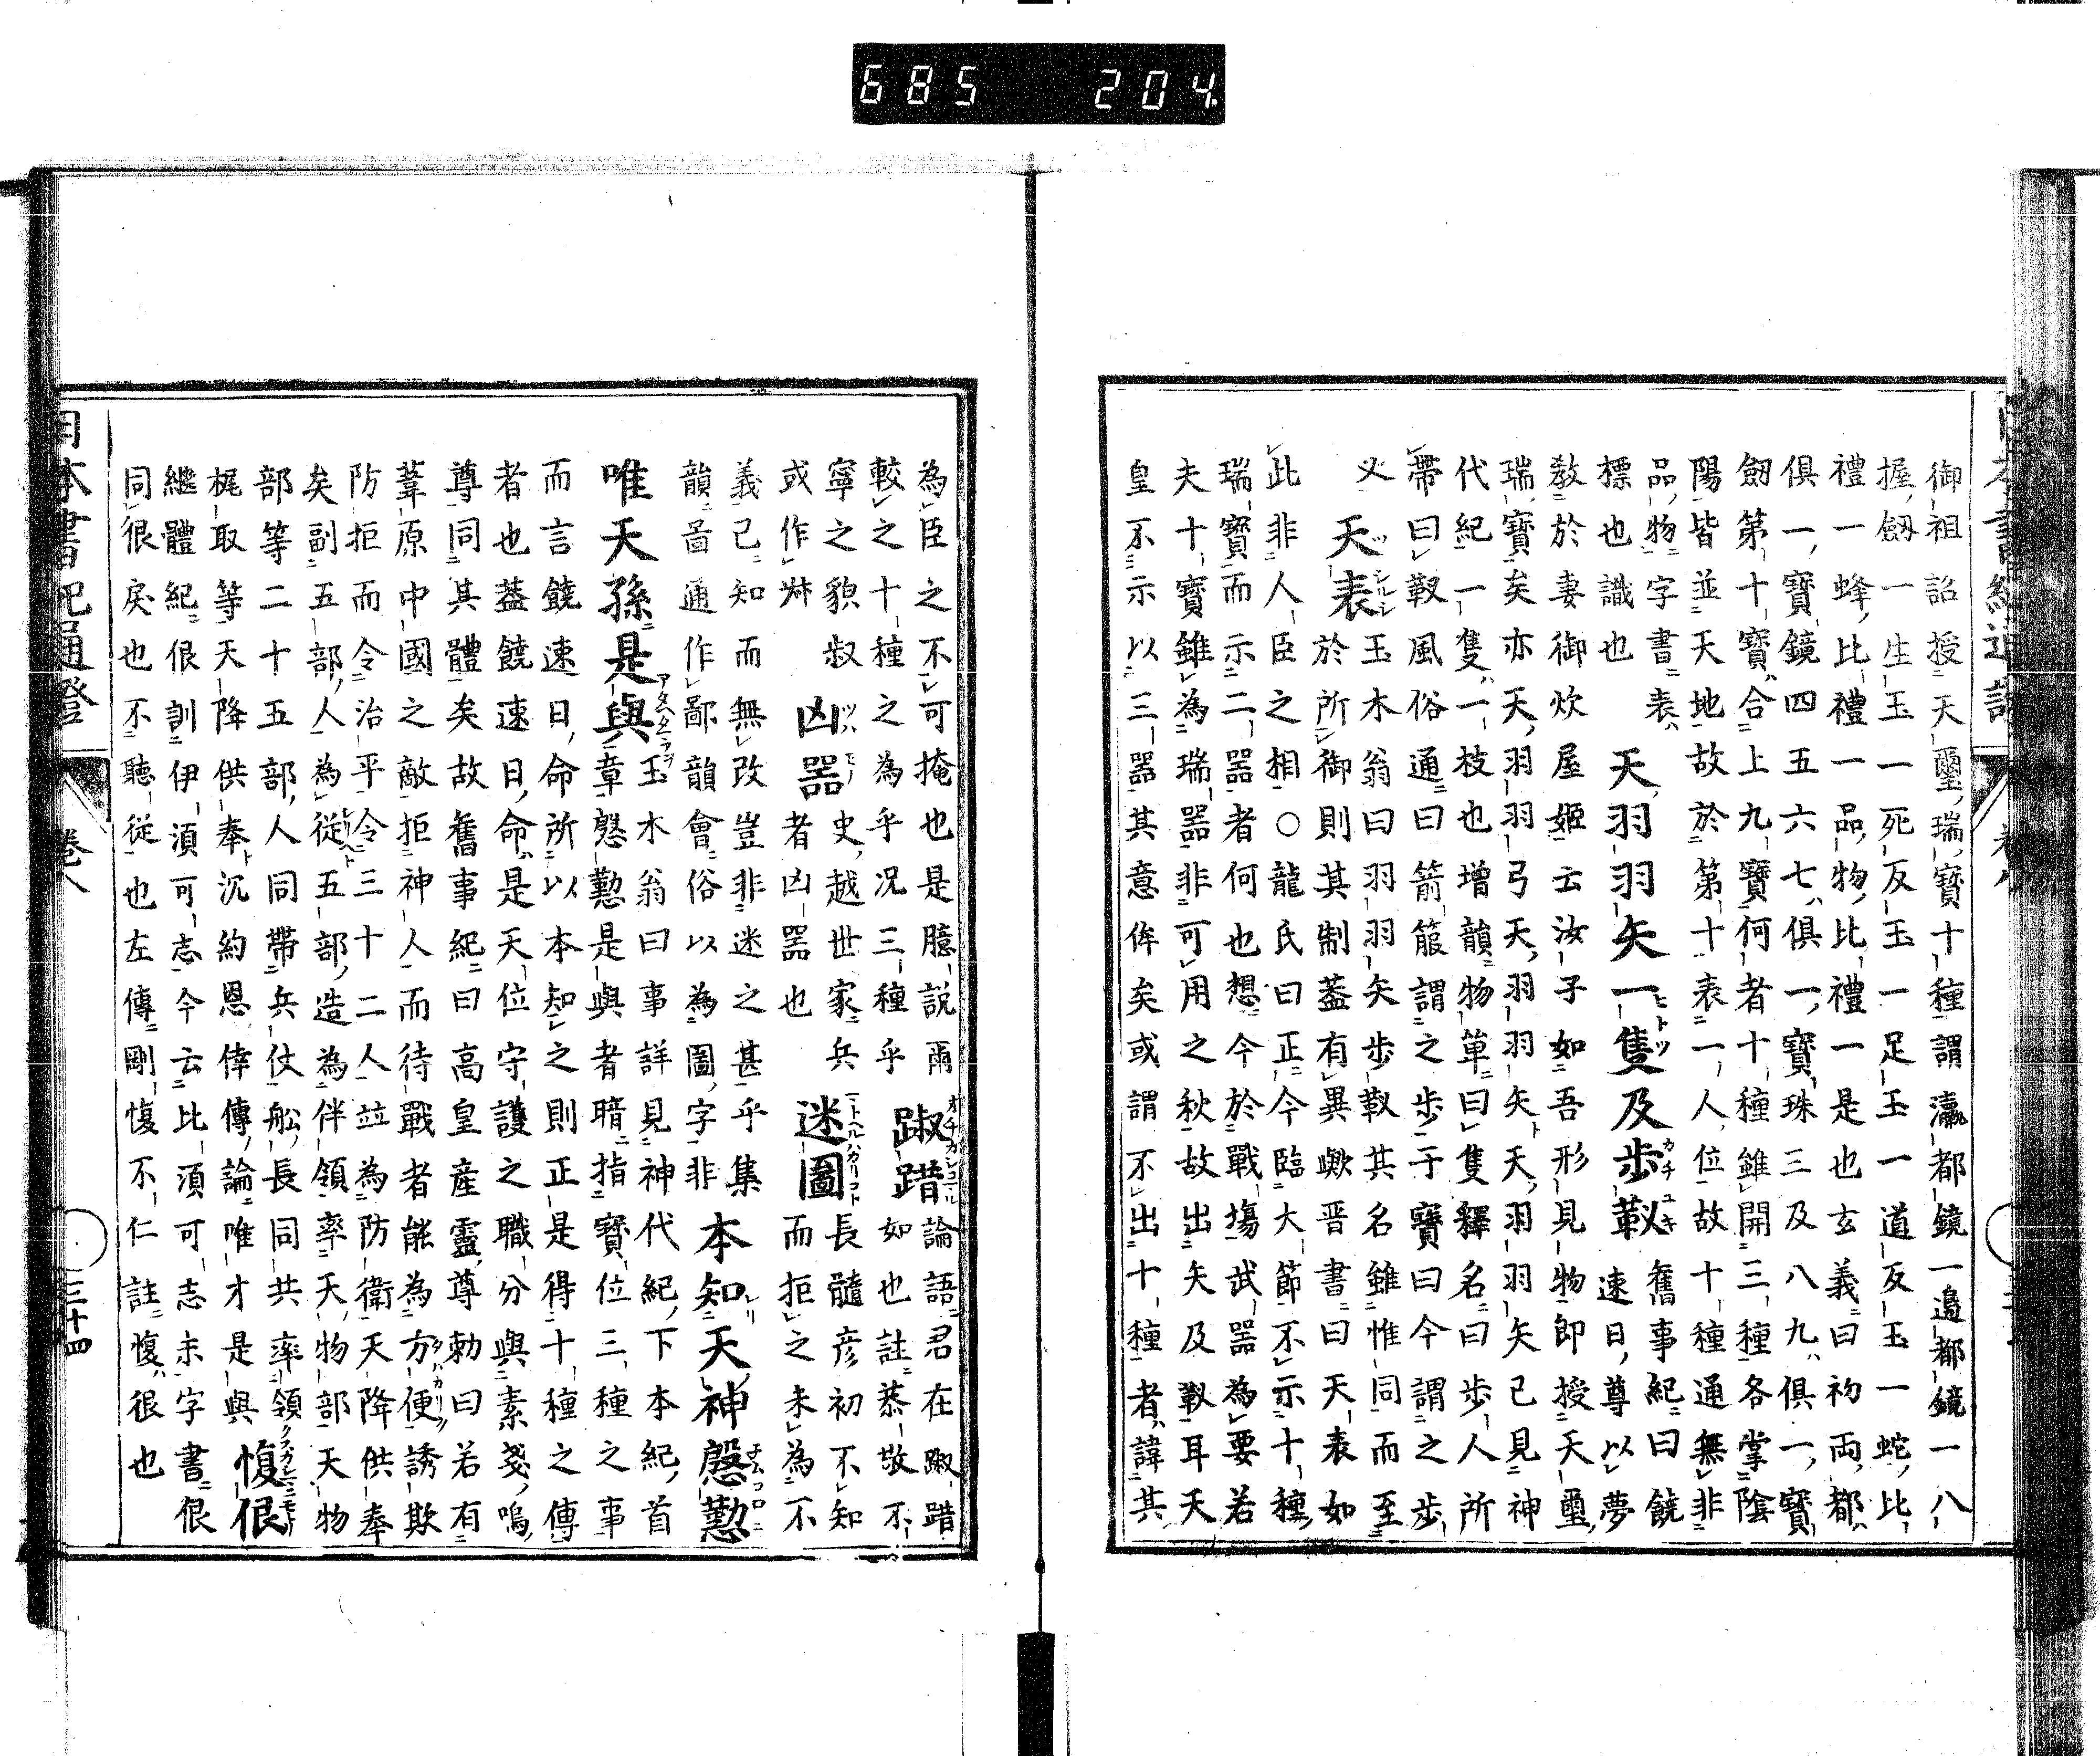 685 204
御祖詔授天璽瑞寶十種謂瀛都鏡一邊都鏡一八
握劔一生玉一死反玉一足玉一道反玉一蛇比
禮一蜂比禮一品物比禮一是也玄義曰初両都
俱一寶鏡四五六七俱一寶珠三及八九俱一寶
劔第十寶合上九寶何者十種雖開三種各掌陰
陽皆並天地故於第十表一人位故十種通無非
品物字書表
標也識也
天羽羽矢一隻及歩靫
ヒトツ
カチユキ
舊事紀曰饒
速日尊以夢
教於妻御炊屋姫云汝子如吾形見物即授天璽
瑞寶矣亦天羽羽弓天羽羽矢ト天羽羽矢已見神
代紀一隻一枝也增韻物單曰隻釋名曰歩人所
帶曰靫風俗通曰箭箙謂之歩于寶曰今謂之歩
义
天表
シルシ
玉木翁曰羽羽矢歩靫其名雖惟同而至
於所御則其制蓋有異歟晋書曰天表如
此非人臣之相○龍氏曰正今臨大節不示十種
瑞寶而示二器者何也想今於戰塲武器為要若
夫十寶雖為瑞器非可用之秋故出矢及靫耳天
皇不示以三器其意侔矣或謂不出十種者諱其
為臣之不可掩也是臆說爾
較之十種之為乎况三種乎
踧踖
論語君在踧踖
如也註恭敬不
寧之貌叔
或作𡬶
凶器
史越世家兵
者凶器也
迷圖
長髓彦初不知
而拒之未為不
義已知而無改豈非迷之甚乎集
韻啚通作鄙韻會俗以為圖字非
本知天神慇懃
唯天孫是與
玉木翁曰事詳見神代紀下本紀首
章慇懃是與者暗指寶位三種之事
而言饒速日命所以本知之則正是得十種之傳
者也蓋饒速日命是天位守護之職分與素戔嗚
尊同其體矣故舊事紀曰高皇産靈尊勅曰若有
葦原中國之敵拒神人而待戰者能為方便誘欺
防拒而令治平令三十二人並為防衛天降供奉
矣副五部人為從五部造為伴領率天物部天物
部等二十五部人同帶兵仗舩長同共率領
梶取等天降供奉沉約恩倖傳論唯才是與
愎佷
繼體紀佷訓伊湏可志今云比湏可志末字書佷
同很戾也不聽從也左傳剛愎不仁註愎很也
日本書紀通證
卷八
三十四